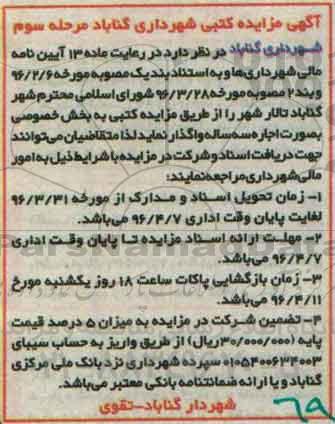 آگهی مزایده کتبی شهرداری گناباد مرحله سوم
شهرداری گناباد در نظر دارد در رعایت ماده ۱۳ آیین نامه
مالی شهرداری‌ها و به استناد بند یک مصوبه مورخه ۹۶/۲/۶
و بند ۲ مصوبه مورخه ۹۶/۳/۲۸ شورای اسلامی محترم شهر
گناباد تالار شهر را از طریق مزایده کتبی به بخش خصوصی
بصورت اجاره سه ساله واگذار نماید لذا متقاضیان می‌توانند
جهت دریافت اسناد و شرکت در مزایده با شرایط ذیل به امور
مالی شهرداری مراجعه نمایند:
۱- زمان تحویل اسناد و مدارک از مورخه ۹۶/۳/۳۱
لغایت پایان وقت اداری ۹۶/۴/۷ می‌باشد.
۲- مهلت ارائه اسناد مزایده تا پایان وقت اداری
۹۶/۴/۷ می‌باشد.
۳- زمان بازگشایی پاکات ساعت ۱۸ روز یکشنبه مورخ
۹۶/۴/۱۱ می‌باشد.
۴- تضمین شرکت در مزایده به میزان ۵ درصد قیمت
پایه (۳۰/۰۰۰/۰۰۰ریال) از طریق واریز به حساب سیبای
۰۱۰۵۴۰۰۶۳۴۰۰۳ سپرده شهرداری نزد بانک ملی مرکزی
گناباد و یا ارائه ضمانتنامه بانکی معتبر می‌باشد.
شهردار گناباد-تقوی
۶۹